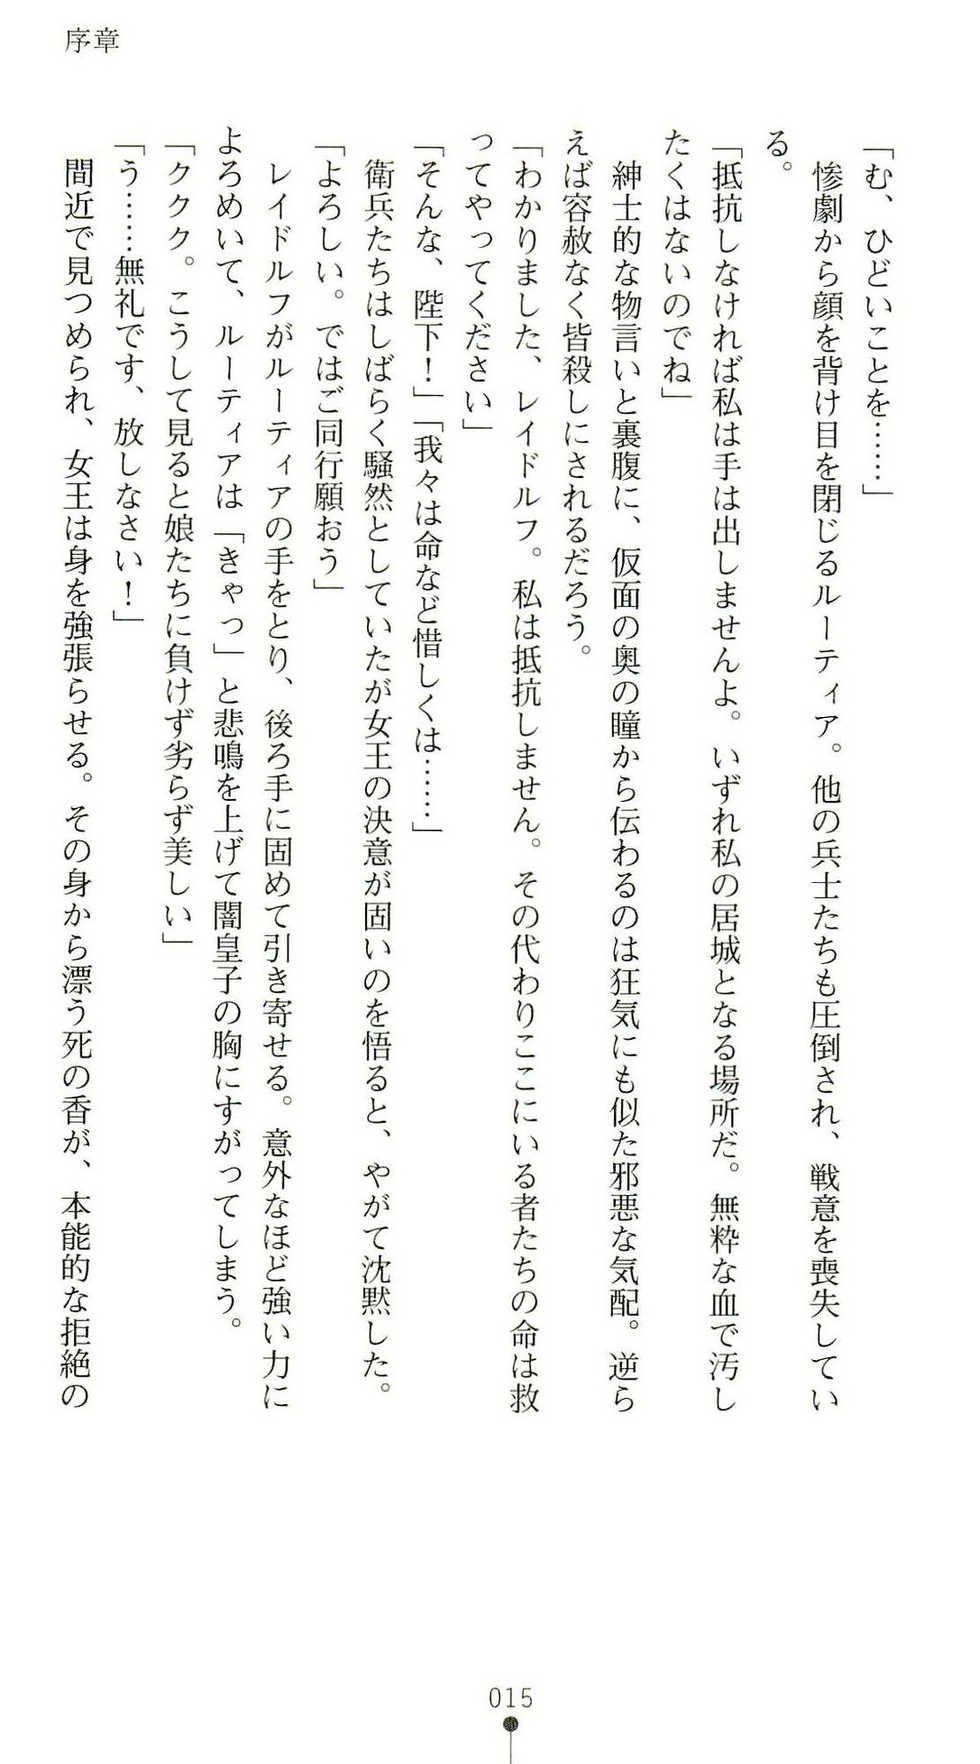 序章
「む、ひどいことを……」
　惨劇から顔を背け目を閉じるルーティア。他の兵士たちも圧倒され、戦意を喪失してい
る。
「抵抗しなければ私は手は出しませんよ。いずれ私の居城となる場所だ。無粋な血で汚し
たくはないのでね」
　紳士的な物言いと裏腹に、仮面の奥の瞳から伝わるのは狂気にも似た邪悪な気配。逆ら
えば容赦なく皆殺しにされるだろう。
「わかりました、レイドルフ。私は抵抗しません。その代わりここにいる者たちの命は救
ってやってください」
「そんな、陛下！」「我々は命など惜しくは……」
　衛兵たちはしばらく騒然としていたが女王の決意が固いのを悟ると、やがて沈黙した。
「よろしい。ではご同行願おう」
　レイドルフがルーティアの手をとり、後ろ手に固めて引き寄せる。意外なほど強い力に
よろめいて、ルーティアは「きゃっ」と悲鳴を上げて闇皇子の胸にすがってしまう。
「ククク。こうして見ると娘たちに負けず劣らず美しい」
「う……無礼です、放しなさい！」
　間近で見つめられ、女王は身を強張らせる。その身から漂う死の香が、本能的な拒絶の
015